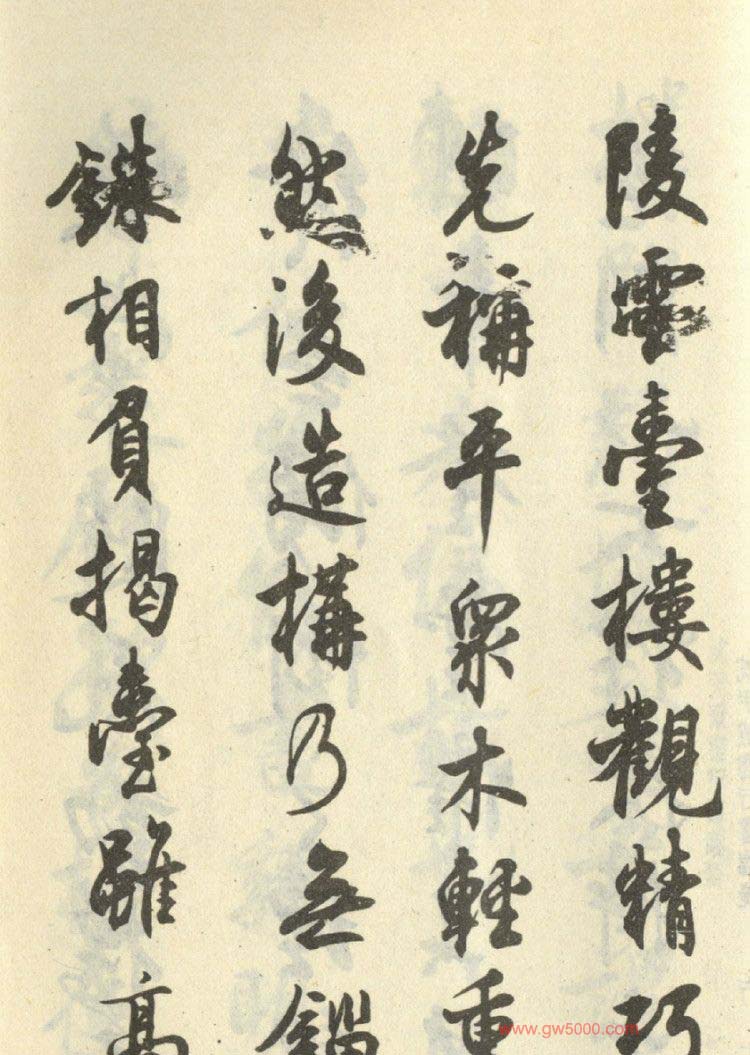 陵雲臺樓觀精巧
先稱平眾木輕重
然後造構乃無錙
銖相負揭臺雖高
www.gw5000.com